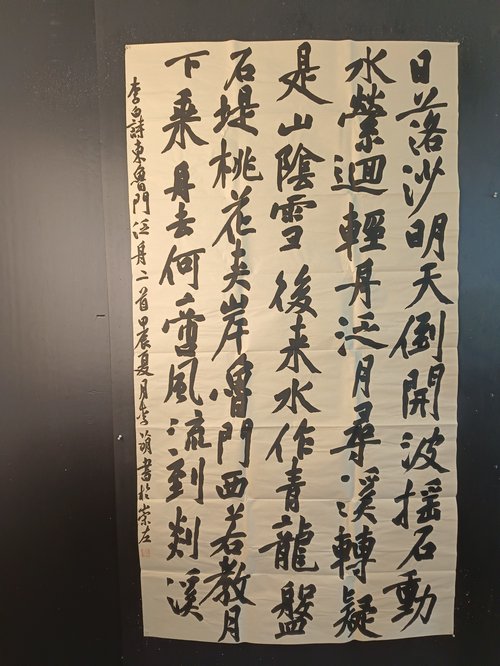 日落沙明天倒開波搖石動
水縈迴輕舟泛月尋溪轉疑
是山陰雪後來水作青龍盤
石堤桃花夾岸魯門西若教月
下乘舟去何啻風流到剡溪
李白詩東魯門泛舟二首甲辰夏月李萌書於崇左